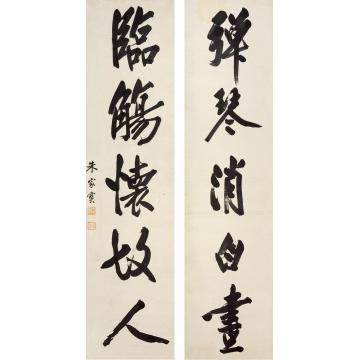 彈琴消白晝
臨觴懷故人
朱家寶